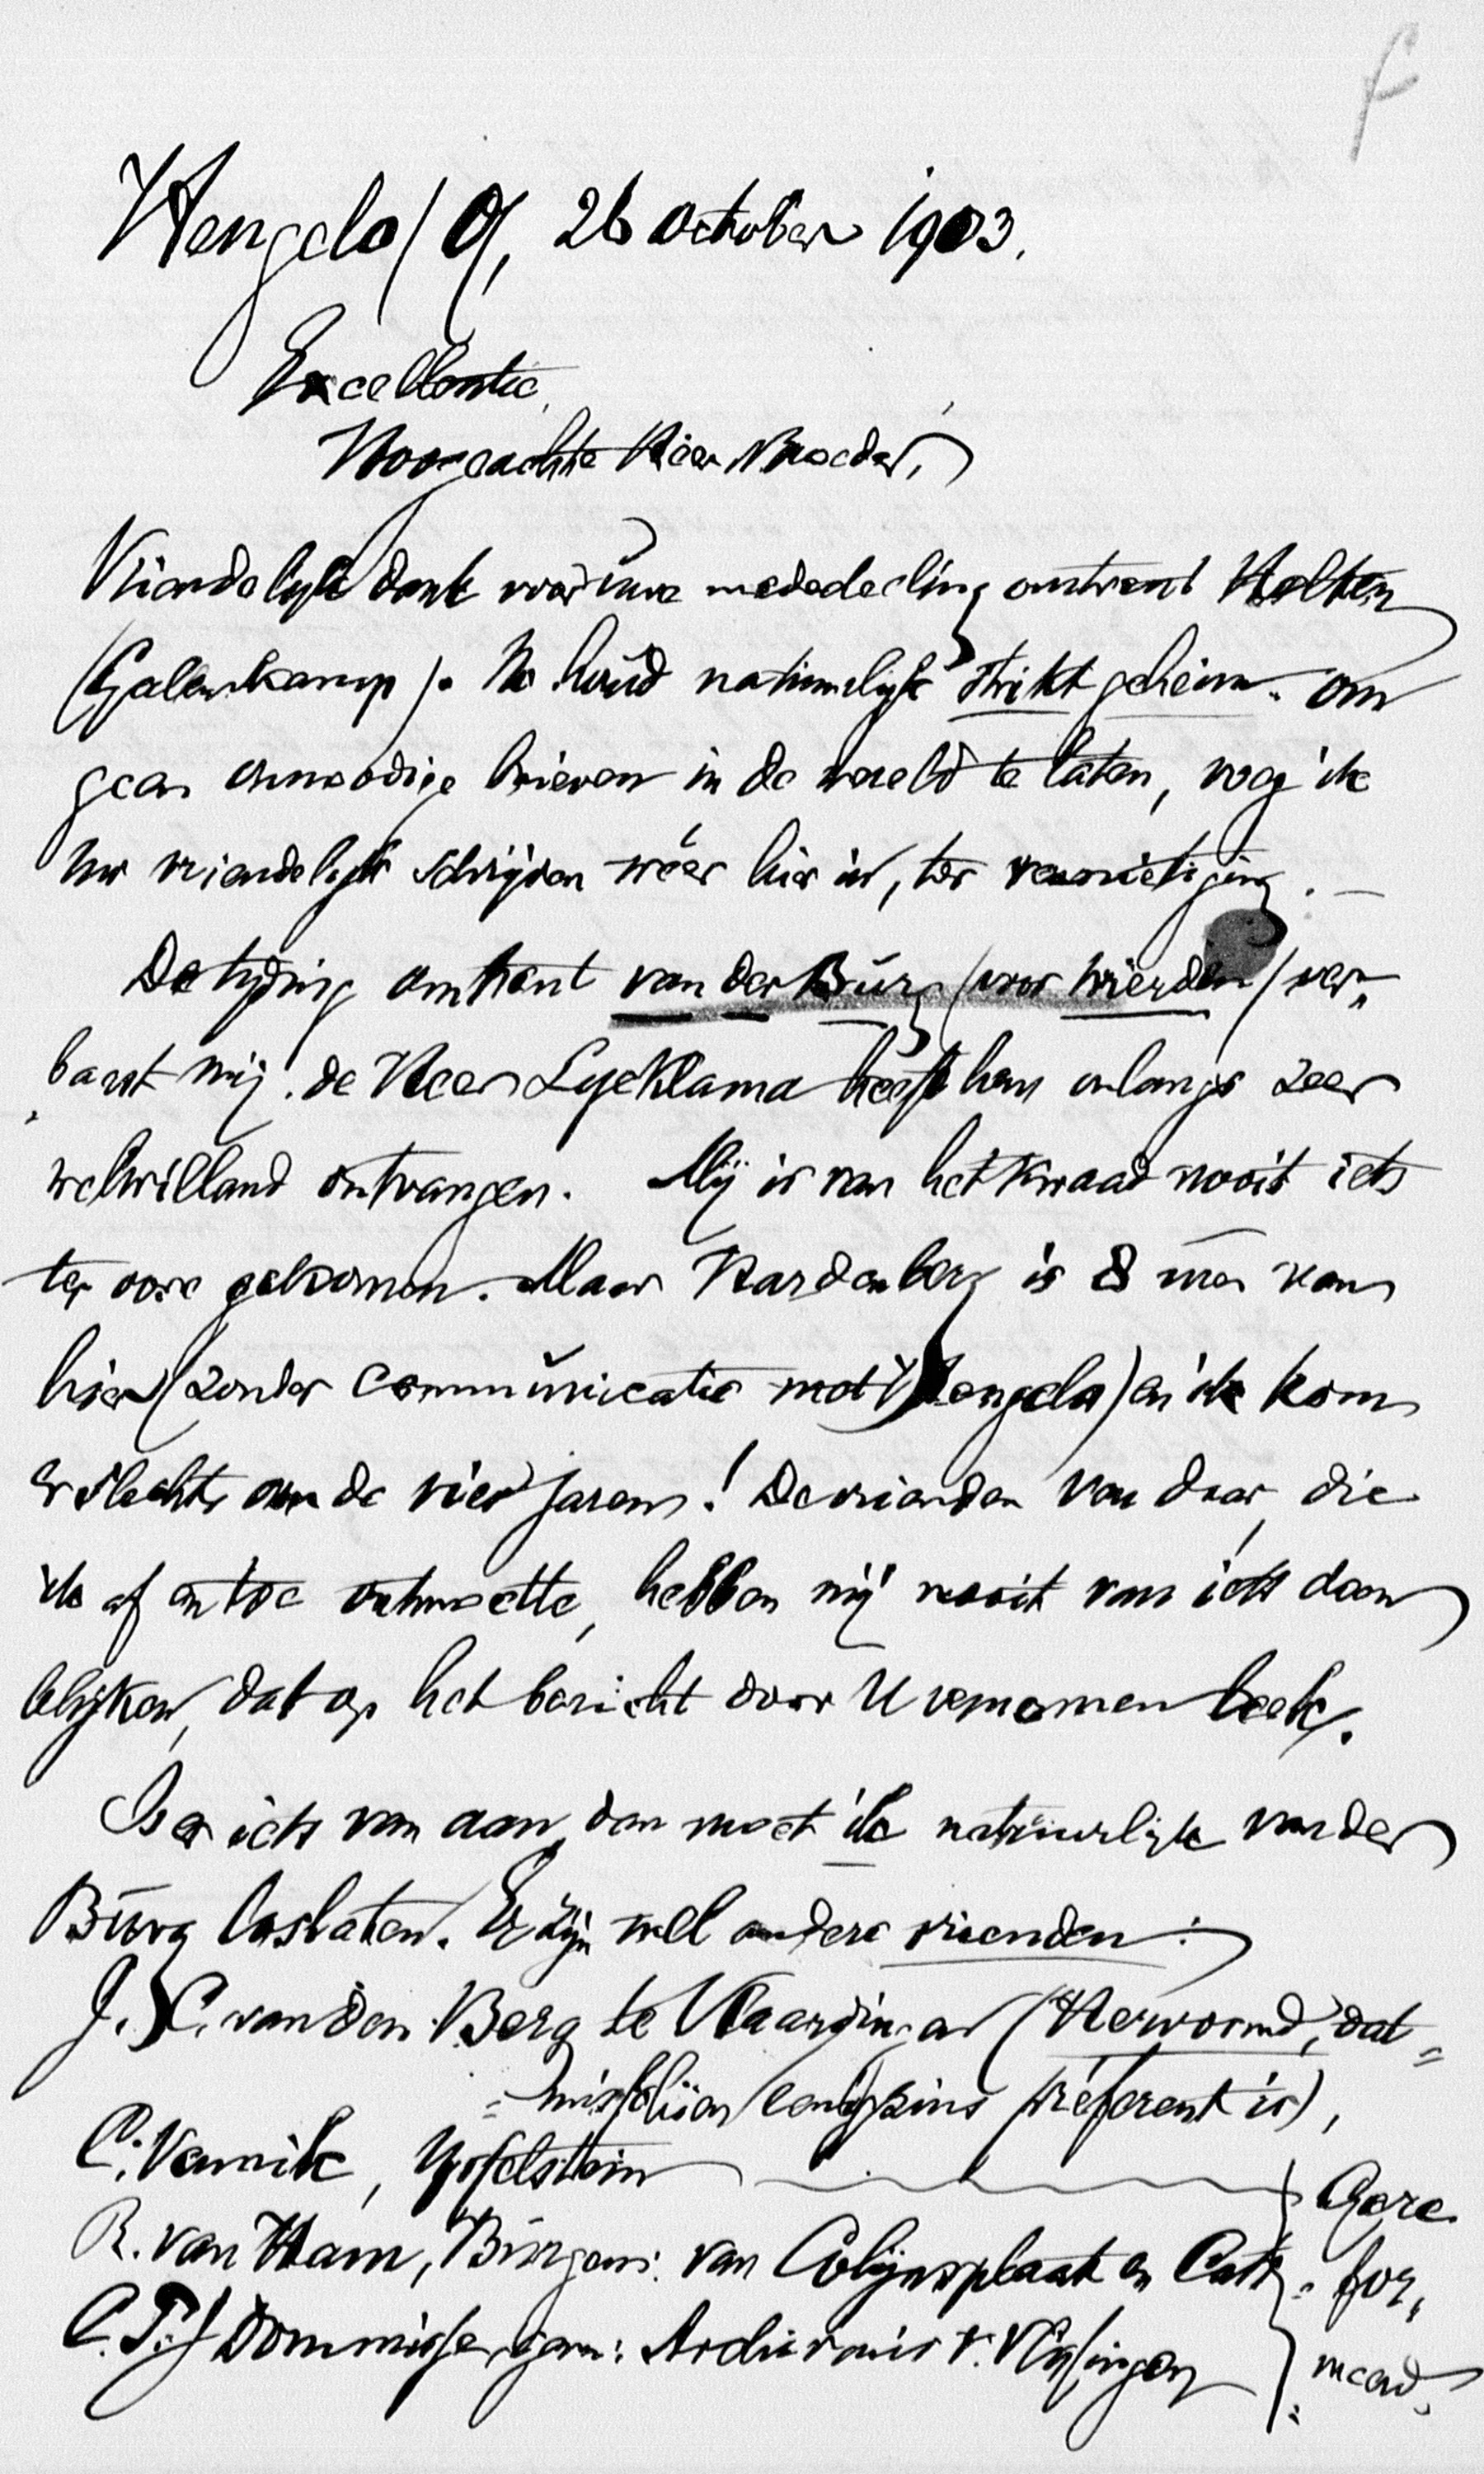 Hengelo (O), 26 October 1903.
Excellentie,
Hoogeachte Heer Broeder,
Vriendelijk dank voor Uwe mededeeling omtrent Holten
(Galenkamp). Ik houd natuurlijk strikt geheim. Om
geen onnoodige brieven in de wereld te laten, voeg ik
Uw vriendelijk schrijven wéér hier in, ter vernietiging. —
De tijding omtrent van der Burg (voor Wierden) ver„
„baast mij. de Heer Lycklama heeft hem onlangs zeer
welwillend ontvangen. Mij is van het kwaad nooit iets
ter oore gekomen. Maar Hardenberg is 8 uren van
hier (zonder communicatie met Hengelo) en ik kom
er slechts om de vier jaren! De vrienden van daar, die
ik af en toe ontmoette, hebben mij nooit van iets doen
blijken, dat op het bericht door U vernomen leek.
Is er iets van aan, dan moet ik natuurlijk van der
Burg loslaten. Er zijn wel andere vrienden:
J. C. van den Berg te Vlaardingen (Hervormd, dat=
=misschien eenigszins préferent is),
C. Vermik, IJsselstein
R. van Ham, Burgem: van Colijnsplaat en Cats
C. P. I. Dommisse, gem: Archivaris v. Vlissingen
Gere„
„for„
„meerd„